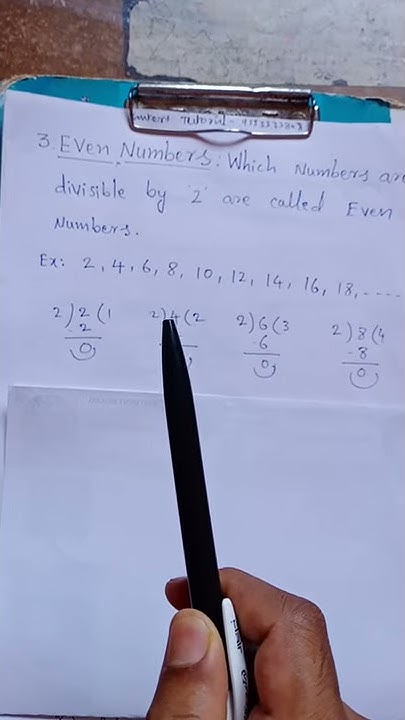 Tutorial -
3. Even Numbers: Which Numbers are
divisible by '2' are called Even
Numbers.
Ex: 2, 4, 6, 8, 10, 12, 14, 16, 18, -----
2) 2 (1 2) 4 (2 2) 6 (3 2) 8 (4
-2 -6 -8
0 0 0